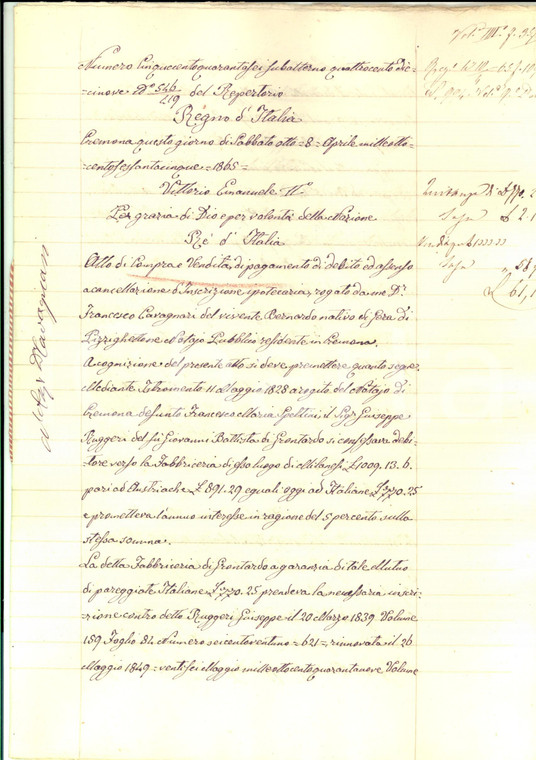 Numero Cinquecentoquarantasei subalterno quattrocento dic=
=cinove N° 546/419 del Repertorio
Regno d'Italia
Cremona questo giorno di Sabbato otto = 8 = Aprile mille otto=
=centosessantacinque = 1865 =
Vittorio Emanuele II°
Per grazia di Dio e per volontà della Nazione
Re d'Italia
Atto di Compra e Vendita, di pagamento di debito ed assenso
a cancellazione d'Inscrizione ipotecaria, rogato da me Dr.
Francesco Cavagnari del vivente Bernardo nativo di Gera di
Pizzighettone Notajo Pubblico residente in Cremona.
A cognizione del presente atto si deve premettere quanto segue.
Mediante Istromento 11 Maggio 1828 a rogito del Notajo di
Cremona defunto Francesco Maria il Sigr Giuseppe
Ruggeri del fu Giovanni Battista di Grontardo si confessava debi=
=tore verso la Fabbriceria di esso luogo di Milanesi £ 1009. 13. 6
pari ad Austriache £ 891.29 eguali oggi ad Italiane £ 770.25
e prometteva l'annuo interesse in ragione del 5 percento sulla
stessa somma.
La detta Fabbriceria di Grontardo a garanzia di tale Mutuo
di pareggiate Italiane £ 770.25 prendeva la necessaria inscri=
=zione contro detto Ruggeri Giuseppe il 20 Marzo 1839 Volume
159 Foglio 84 Numero seicentoventuno = 621 = rinnovata il 26
Maggio 1849 = ventisei Maggio mille ottocentoquarantanove Volume